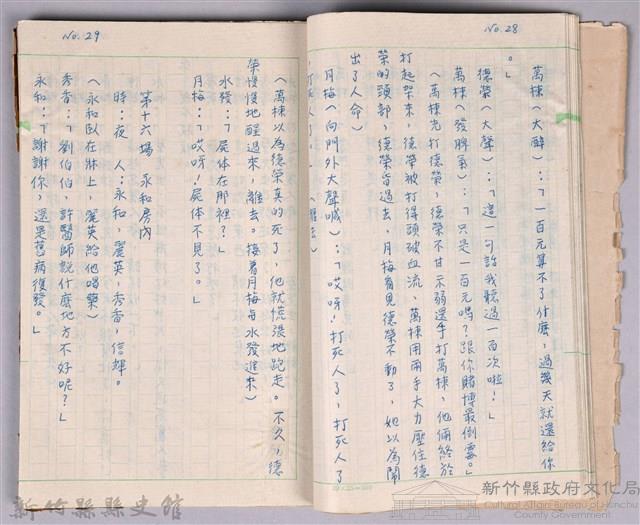 No. 28
萬棟(大醉):「一百元算不了什麼,過幾天就還給你
。」
德榮(大聲):「這一句話我聽過一百次啦!」
萬棟(發脾氣):「只是一百元嗎?跟你賭博最倒霉。」
(萬棟先打德榮,德榮不甘示弱還手打萬棟,他倆終於
打起架來,德榮被打得頭破血流,萬棟用兩手大力壓住德
榮的頭部,德榮昏過去,月梅看見德榮不動了,她以為鬧
出了人命)
月梅(向門外大聲喊):「哎呀!打死人了,打死人了
No. 29
(萬棟以為德榮真的死了,他就慌張地跑走。不久,德
榮慢慢地醒過來,離去。接著月梅与水發進來)
水發:「屍体在那裡?」
月梅:「哎呀!屍体不見了。」
第十六場 永和房內
時:夜 人:永和,麗英,秀香,信輝。
(永和臥在牀上,麗英給他喝藥)
秀香:「劉伯伯,許醫師說什麼地方不好呢?」
永和:「謝謝你,還是舊病復發。」
新竹縣縣史館
新竹縣政府文化局
Cultural Affairs Bureau of Hsinchu
County Government